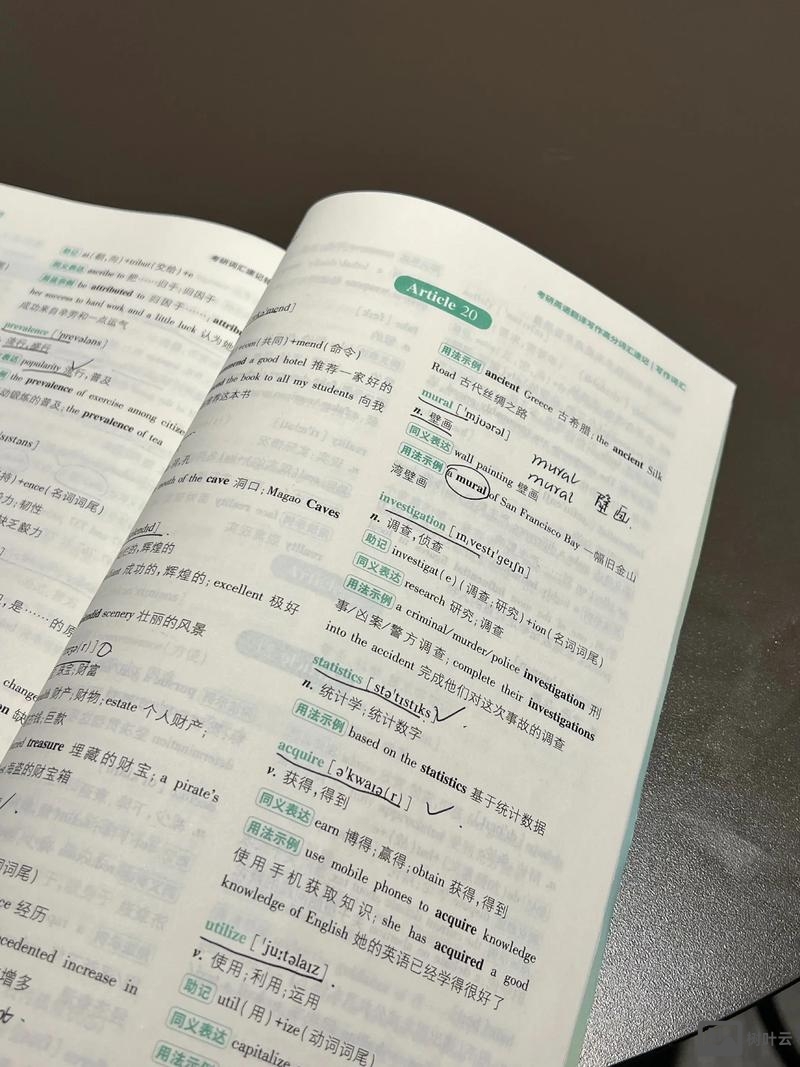 考研词汇速记
助记 at(朝,向)+tribut(交给)+e
同义表达 ascribe to 把……归功于;归因于
用法示例 be attributed to 归因于……
her success to hard work and a little luck 认为她
成功来自辛劳和一点运气
prevalence ['prevələns]
流行,盛行
popularity 流行,普及
the prevalence of exercise among
动锻炼的普及; the prevalence of tea
持)+ence(名词词尾)
力;韧性
缺乏毅力
是……的
change
com(共同)+mend(命令)
a good hotel 推荐一家好的
the book to all my students 向我
荐这本书
of the cave 洞口; Magao Caves
的,辉煌的
成功的,辉煌的; excellent 极好
scenery 壮丽的风景
宝;财富
财产;财物; estate 个人财产;
巨款
treasure 埋藏的财宝; a pirate's
海盗的财宝箱
词词尾)
经历
increase in
增多
考研英语翻译写作高分词汇速记 | 写作词汇
Article 20
用法示例 ancient Greece 古希腊; the ancient Silk
Road 古代丝绸之路
mural ['mjʊərəl]
n. 壁画
同义表达 wall painting 壁画
mural
mural 壁画.
用法示例 a mural of San Francisco Bay 一幅旧金山
湾壁画
investigation [ɪnˌvestɪ'ɡeɪʃn]
n. 调查,侦查
助记 investigat(e)(调查;研究)+ion(名词词尾)
同义表达 research 研究;调查
用法示例 a criminal/murder/police investigation 刑
事/凶案/警方调查; complete their investigations
into the accident 完成他们对这次事故的调查
statistics [stə'tɪstɪks]
n. 统计学;统计数字
用法示例 based on the statistics 基于统计数据
acquire [ə'kwaɪə(r)]
v. 获得,得到
同义表达 earn 博得;赢得; obtain 获得,得到
用法示例 use mobile phones to acquire knowledge
使用手机获取知识; she has acquired a good
knowledge of English 她的英语已经学得很好了
utilize ['juːtəlaɪz]
v. 使用;利用;运用
助记 util(用)+ize(动词词尾)
同义表达 capitalize
用法示例
树叶云